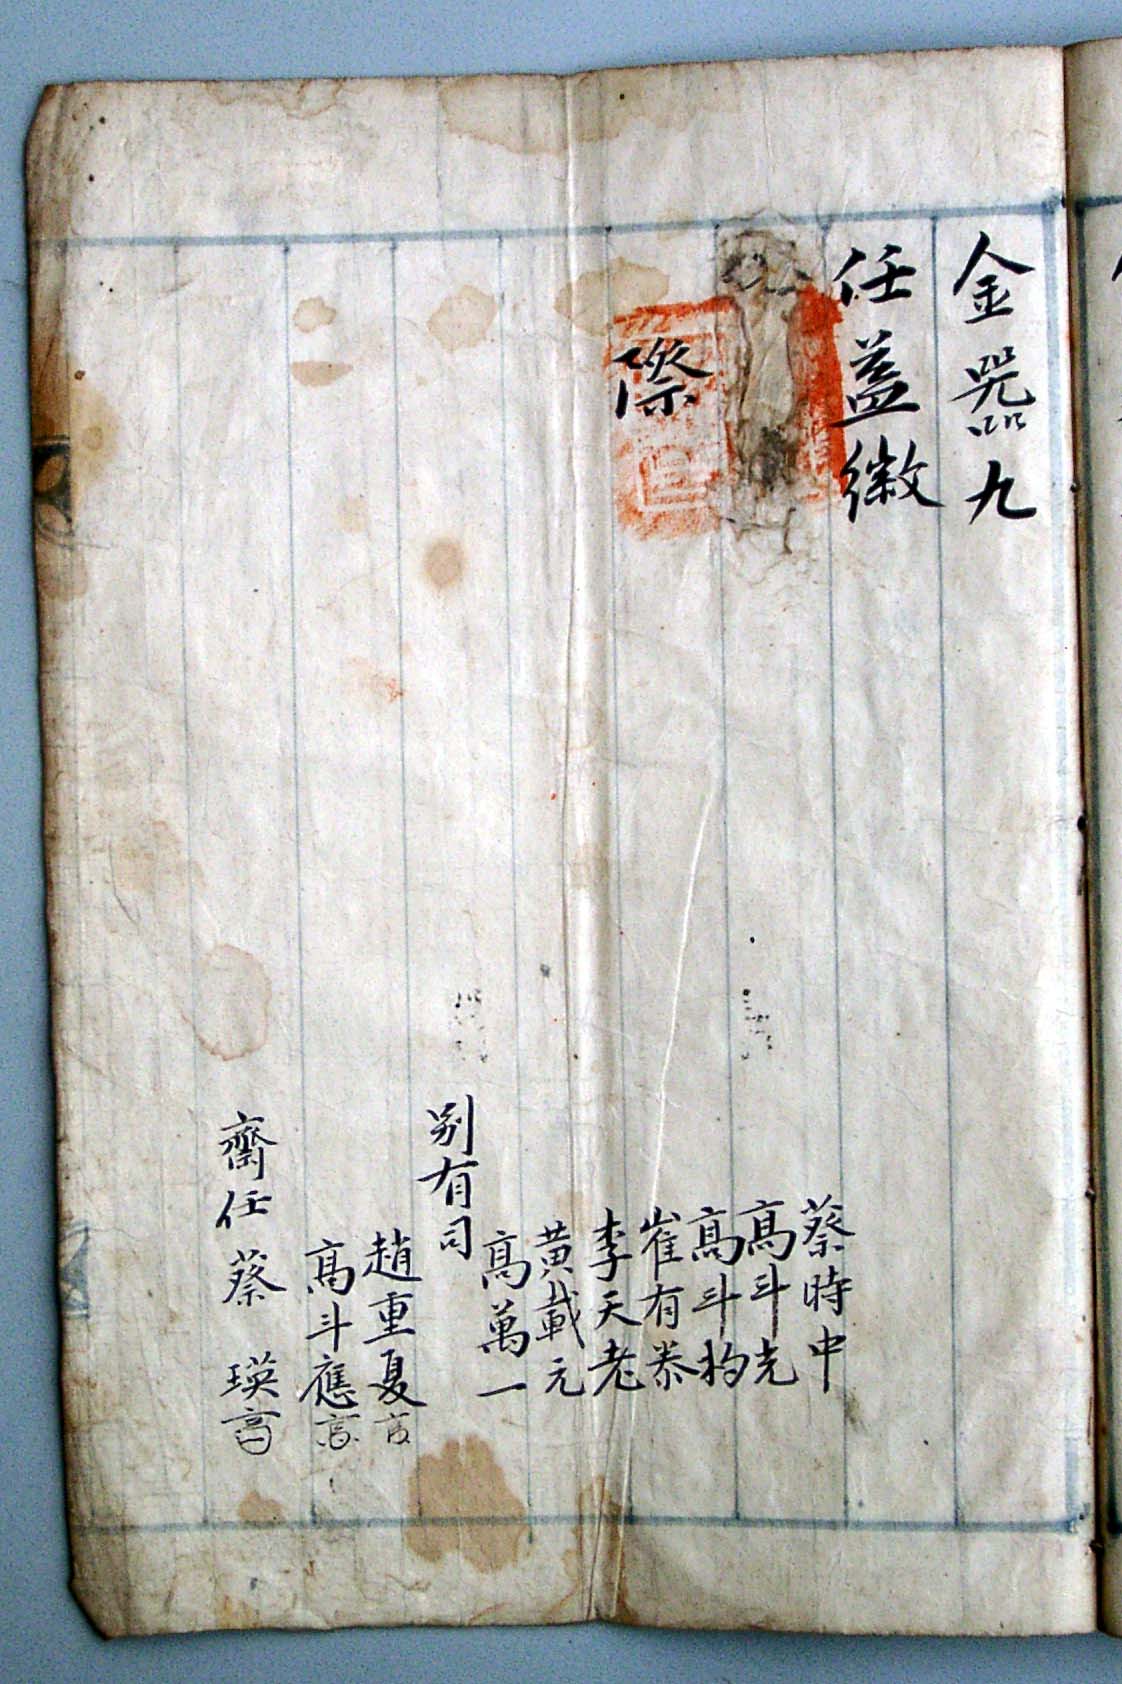 金器九
任益徽
際
蔡時中
高斗光
高斗杓
崔有恭
李天老
黄載元
高萬一
別有司
趙重夏
高斗應
齋任 蔡 瑛